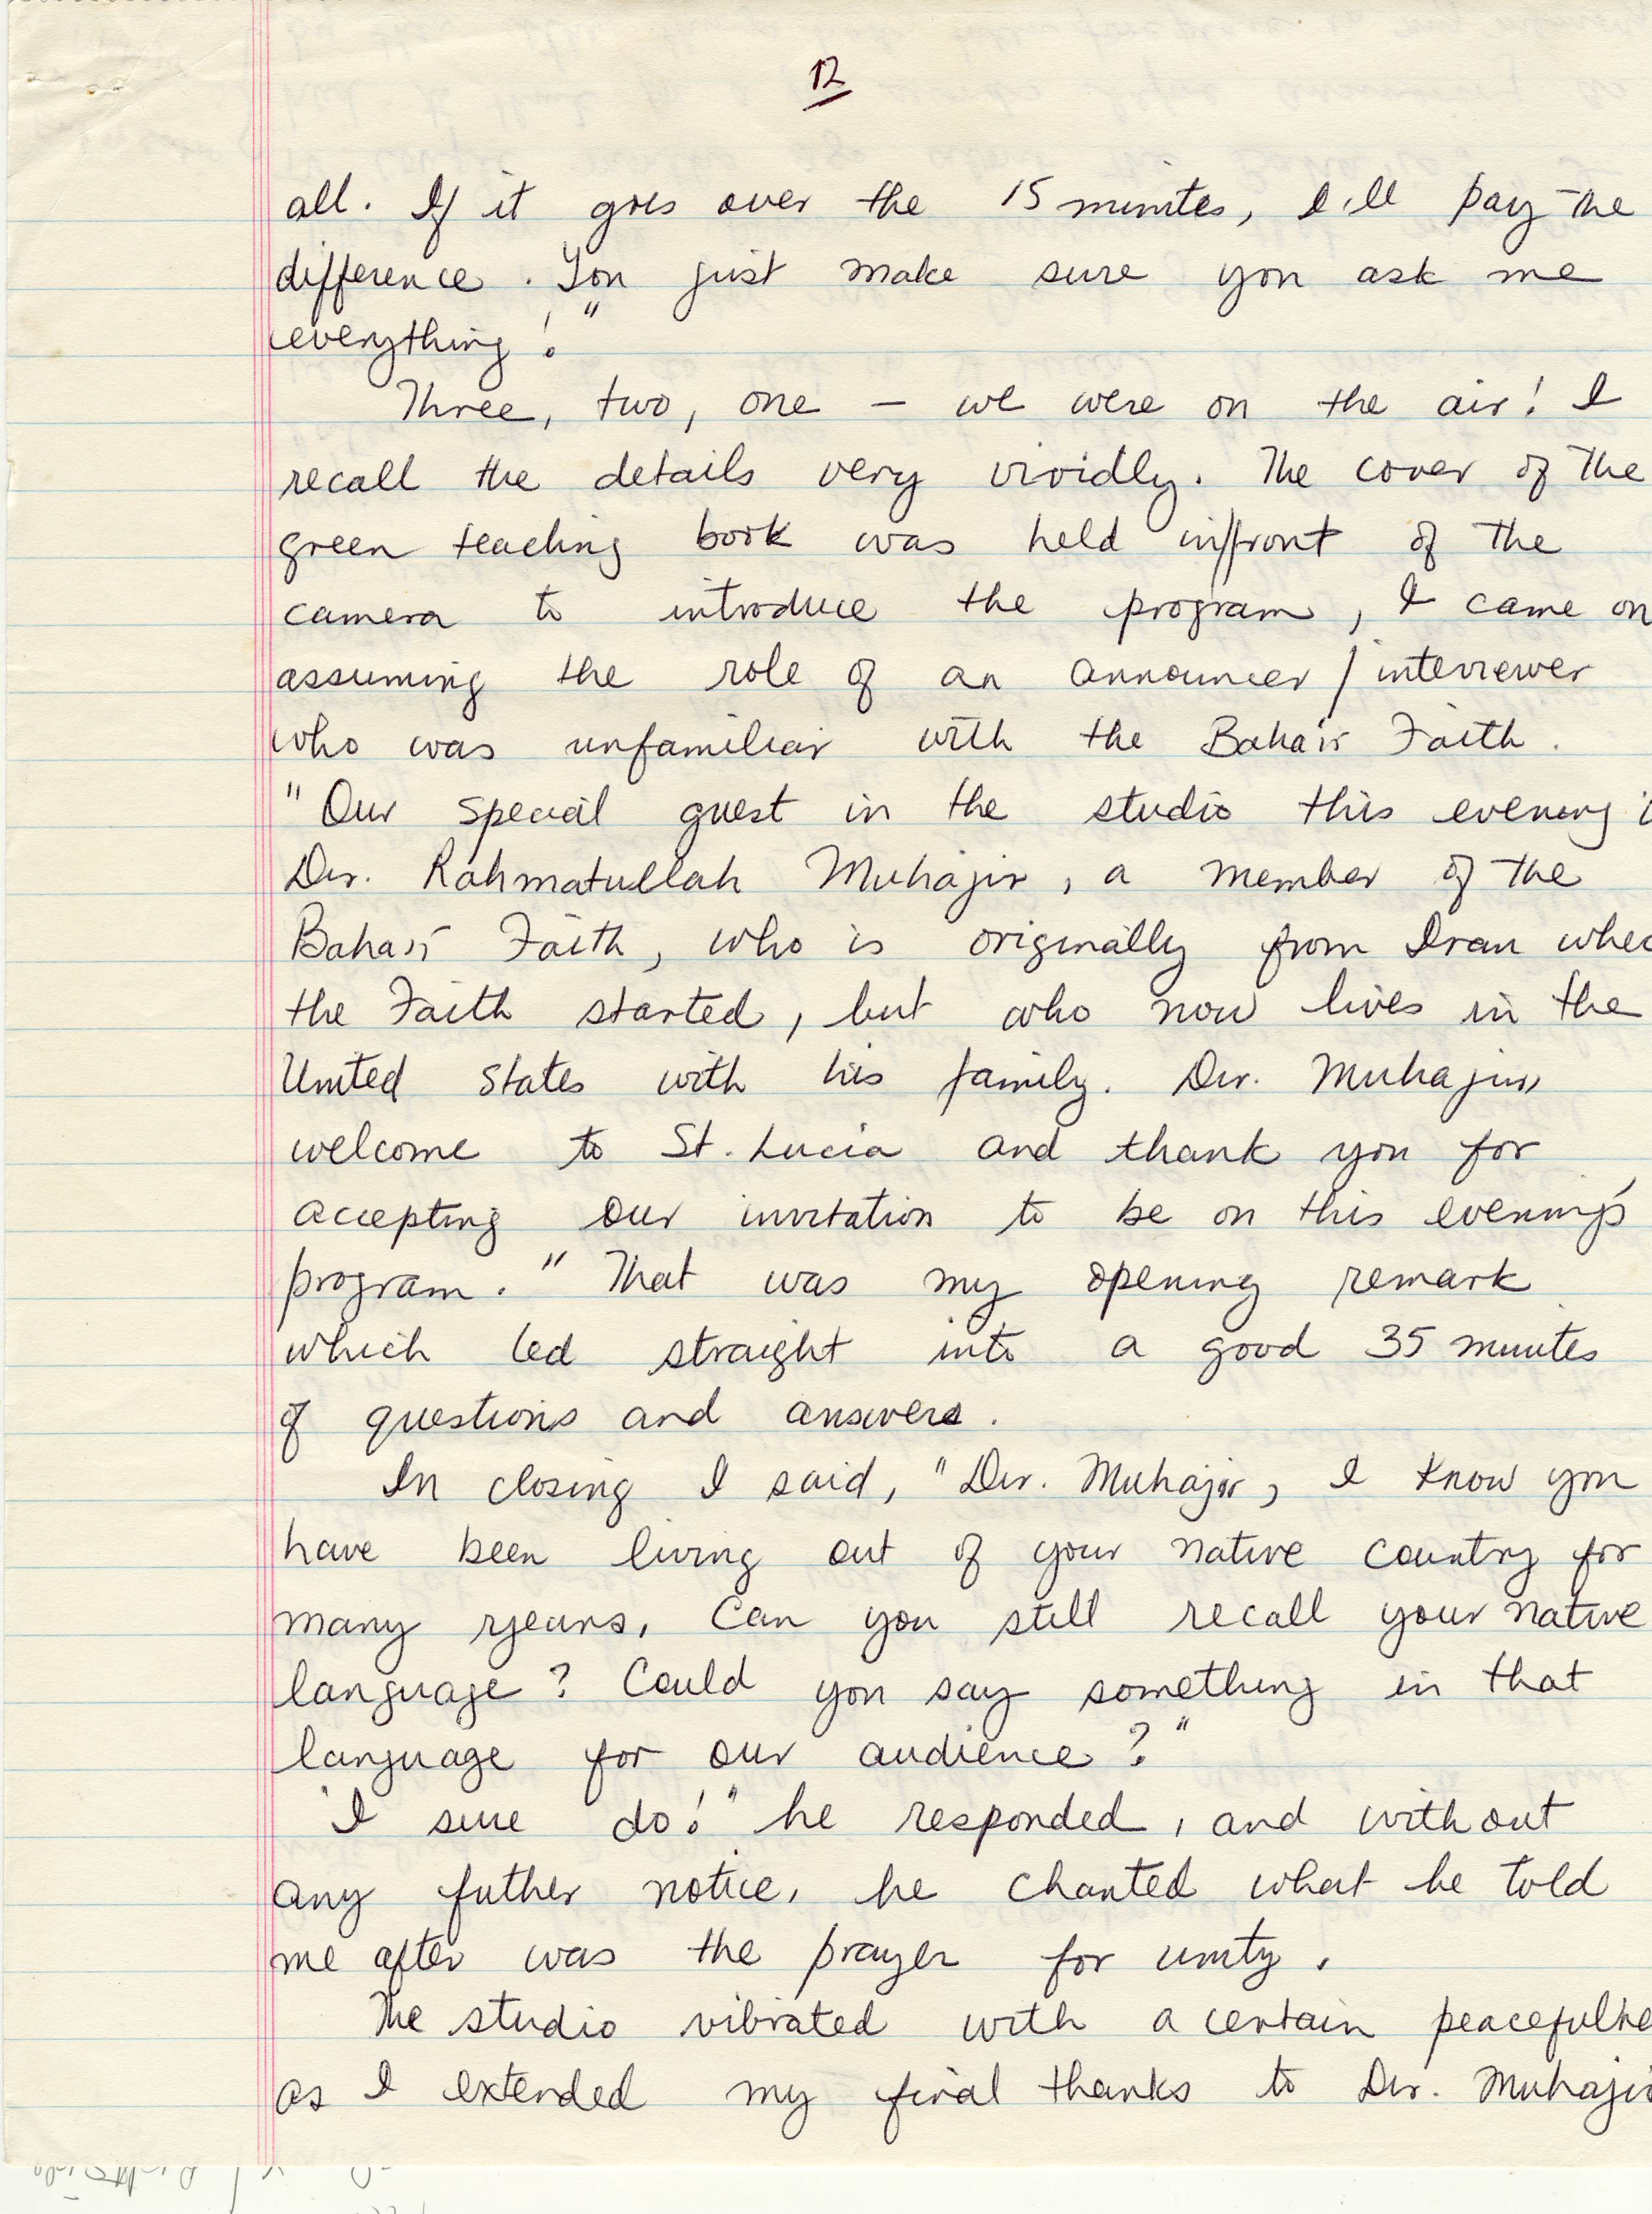 12
all. If it goes over the 15 minutes, I'll pay the
difference. You just make sure you ask me
everything!"
Three, two, one — we were on the air! I
recall the details very vividly. The cover of the
green teaching book was held in/front of the
camera to introduce the program, I came on
assuming the role of an announcer/interviewer
who was unfamiliar with the Baha'i Faith.
"Our special guest in the studio this evening i
Dr. Rahmatullah Muhajir, a member of the
Baha'i Faith, who is originally from Iran wher
the Faith started, but who now lives in the
United States with his family. Dr. Muhajir,
welcome to St. Lucia and thank you for
accepting our invitation to be on this evening's
program." That was my opening remark
which led straight into a good 35 minutes
of questions and answers.
In closing I said, "Dr. Muhajir, I know you
have been living out of your native country for
many years. Can you still recall your native
language? Could you say something in that
language for our audience?"
"I sure do!" he responded, and without
any futher notice, he chanted what he told
me after was the prayer for unity.
The studio vibrated with a certain peacefulne
as I extended my final thanks to Dr. Muhajir